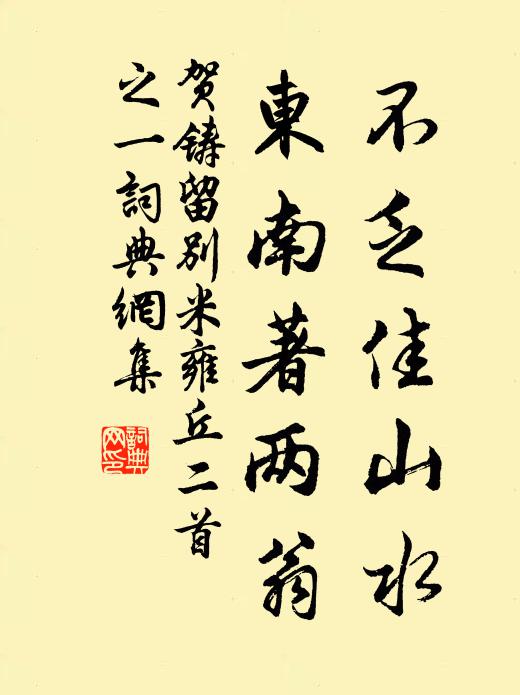 不乏佳山水
東南著两翁
贺鑄留别米雍丘二首
之一詞典網集
詞典
网印